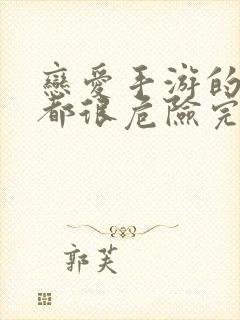 戀愛手游的
都很危險完
郭芙